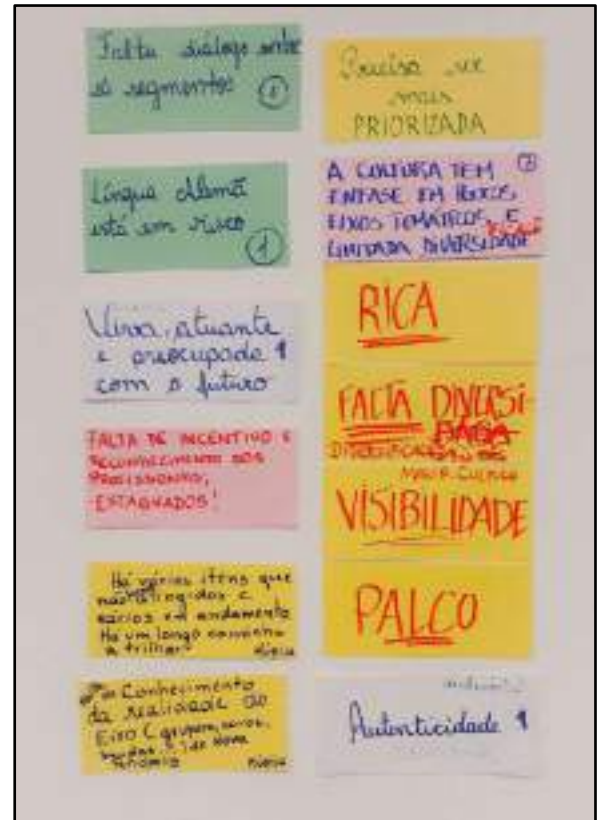 Falta diálogo entre
os segmentos 1
Língua Alemã
está em risco
1
Viva, atuante
e preocupada 1
com o futuro
FALTA DE INCENTIVO E
RECONHECIMENTO DOS
PROFISSIONAIS,
ESTAGNADOS!
Há vários itens que
não atingidos e
vários em andamento
Há um longo caminho
a trilhar
Música
Conhecimento
da realidade do
Eixo (grupos, coros,
bandas...) de Nova
Petrópolis
Música
Precisa ser
mais
PRIORIZADA
A CULTURA TEM
ENFASE EM POUCOS
EIXOS TEMÁTICOS, E
LIMITADA DIVERSIDADE
RICA
FALTA DIVERSI-
VISIBILIDADE
PALCO
Autenticidade 1